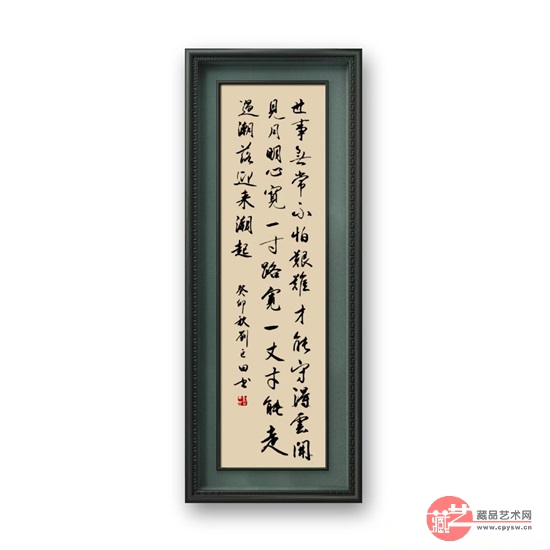 世事无常不怕艰难才能守得雲開
見月明心宽一寸路宽一丈才能走
过潮落迎来潮起
癸卯秋刘之田书
藏艺
藏品艺术网
www.cpysw.cn